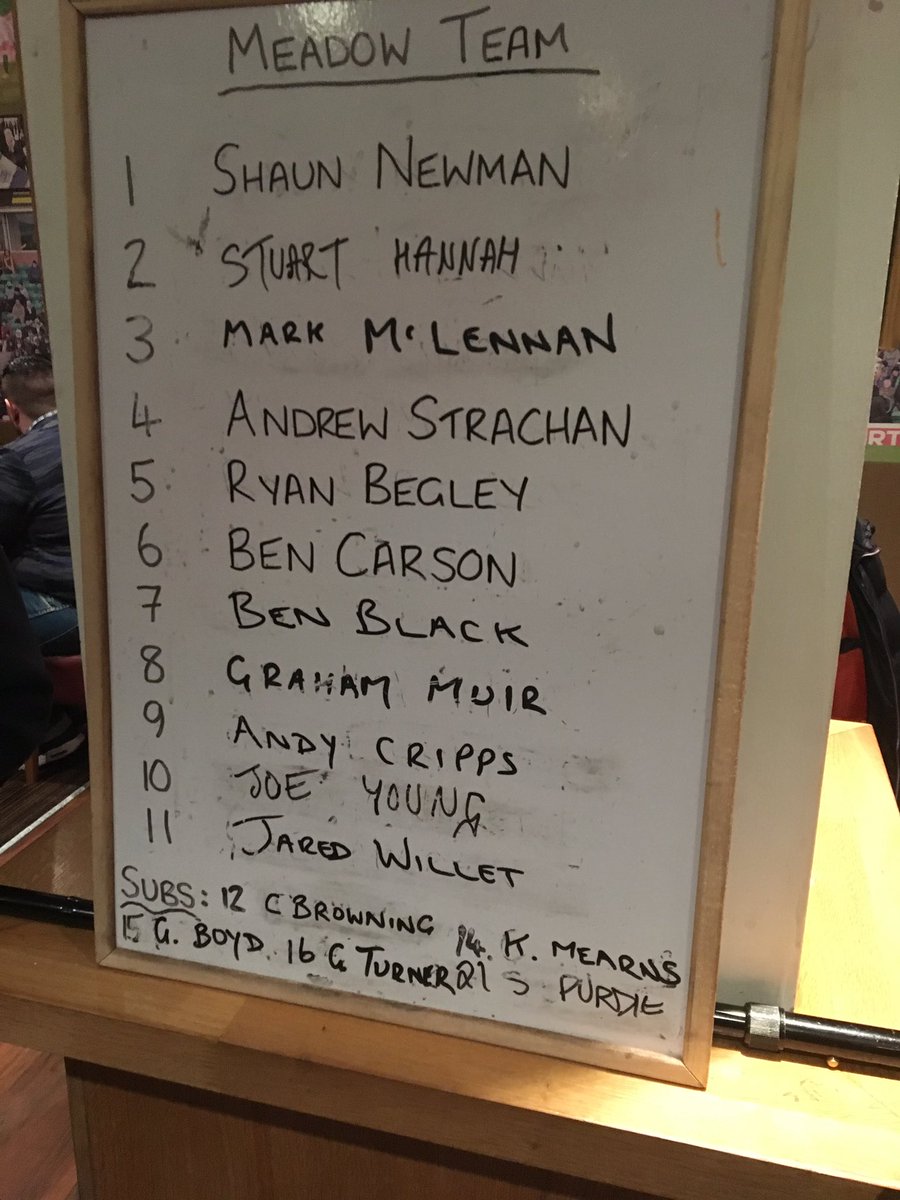 MEADOW TEAM
1 SHAUN NEWMAN
2 STUART HANNAH
3 MARK McLENNAN
4 ANDREW STRACHAN
5 RYAN BEGLEY
6 BEN CARSON
7 BEN BLACK
8 GRAHAM MUIR
9 ANDY CRIPPS
10 JOE YOUNG
11 JARED WILLET
SUBS: 12 C BROWNING 14. K. MEARNS
15 G. BOYD. 16 G TURNER 21 S PURDIE
RT